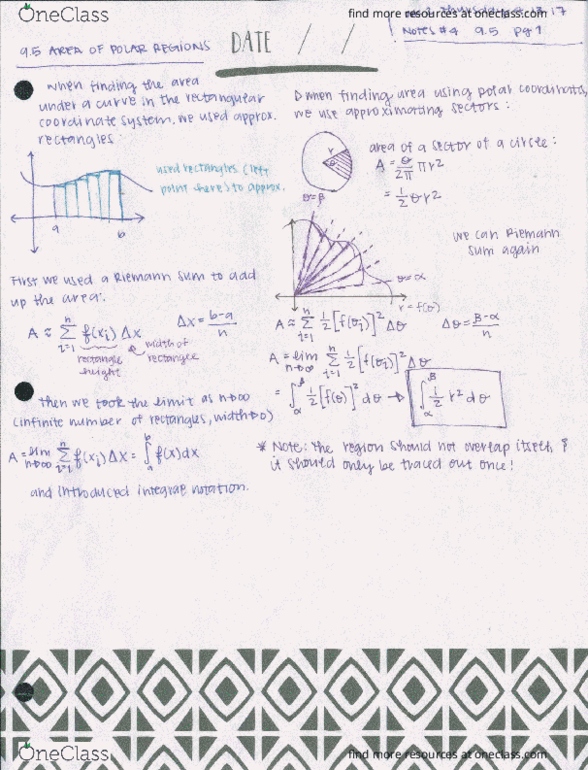 OneClass
find more resources at oneclass.com
17
NOTES #4 9.5 pg 1
9.5 AREA OF POLAR REGIONS
DATE / /
when finding the area
under a curve in the rectangular
coordinate system, we used approx.
rectangles:
used rectangles (left
point here) to approx.
a b
First we used a Riemann sum to add
up the area:
A ≈ n∑i=1 f(xi) Δx Δx = b-a/n
rectangle height
width of rectangle
then we took the limit as n→∞
(infinite number of rectangles, width→0)
A = lim n→∞ n∑i=1 f(xi) Δx = ∫a^b f(x)dx
and introduced integral notation.
when finding area using polar coordinates,
we use approximating sectors:
r
θ
area of a sector of a circle:
A = θ/2π πr²
= 1/2 θr²
θ=β
we can Riemann
sum again
θ=α
r=f(θ)
A ≈ n∑i=1 1/2 [f(θi)]² Δθ Δθ = β-α/n
A = lim n→∞ n∑i=1 1/2 [f(θi)]² Δθ
= ∫α^β 1/2 [f(θ)]² dθ → ∫α^β 1/2 r² dθ
* Note: the region should not overlap itself &
it should only be traced out once!
OneClass
find more resources at oneclass.com